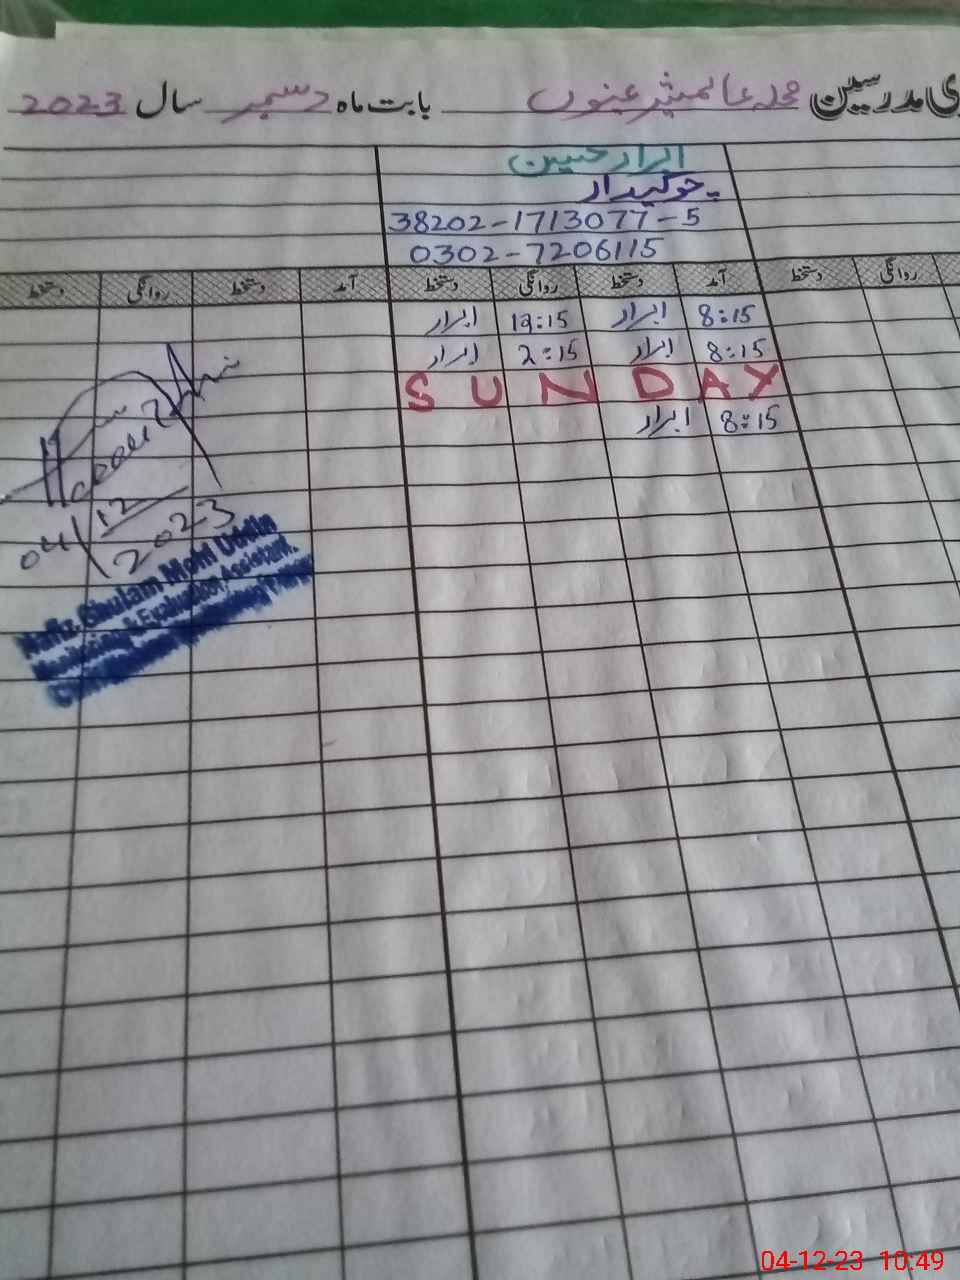 ی مدرسین محلہ عالمشیر عینوں بابت ماہ دسمبر سال 2023
ابرار حسین
چوکیدار
38202-1713077-5
0302-7206115
روانگی دستخط آمد دستخط روانگی دستخط آمد دستخط روانگی دستخط
8:15 ابرار 12:15 ابرار
8:15 ابرار 2:15 ابرار
SUNDAY
8:15 ابرار
04/12/2023
Hafiz Ghulam Mohi Uddin
Monitoring & Evaluation Assistant.
04-12-23 10:49